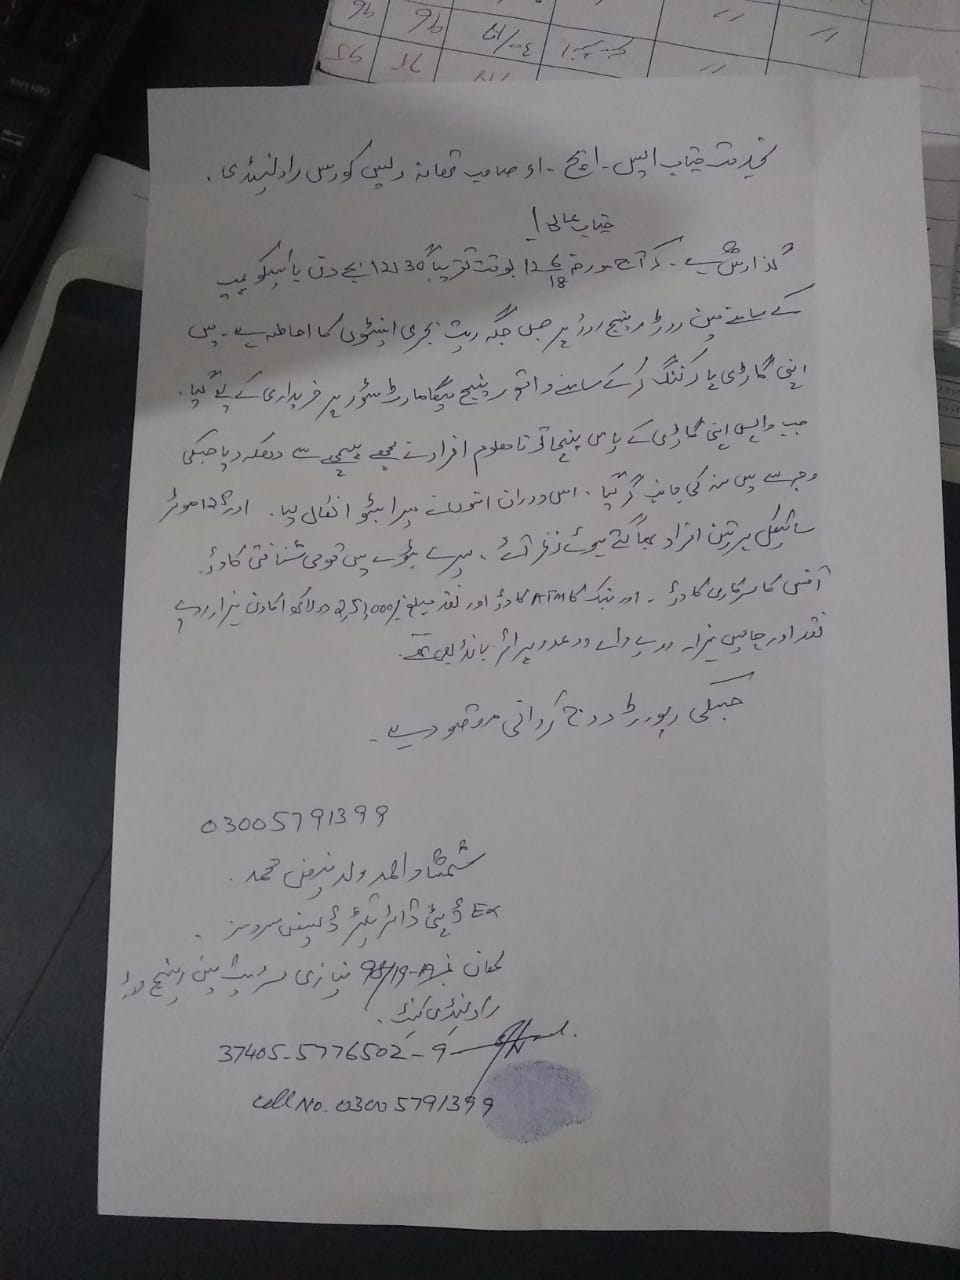 ۹6 ۹6 19/04 〃 〃
95 75 〃 〃
بخدمت جناب ایس۔ ایچ۔ او صاحب تھانہ ریس کورس راولپنڈی۔
جناب عالی!
گذارش ہے۔ کہ آج مورخہ 12-6/18 بوقت تقریباً 12:30 بجے دن کیمپ
کے سامنے مین روڈ رینج روڈ پر جس جگہ ریت بجری اینٹوں کا احاطہ ہے۔ میں
اپنی گاڑی پارکنگ کر کے سامنے واقع رینج میگا مارٹ سٹور پر خریداری کے لئے گیا۔
جب واپس اپنی گاڑی کے پاس پہنچا تو نامعلوم افراد نے مجھے پیچھے سے دھکہ دیا جسکی
وجہ سے میں منہ کی جانب گر گیا۔ اس دوران انہوں نے میرا بٹوا نکال لیا۔ اور 125 موٹر
سائیکل پر تین افراد بھاگتے ہوئے نظر آئے۔ میرے بٹوے میں قومی شناختی کارڈ۔
آفس کا سرکاری کارڈ۔ اور بنک کا ATM کارڈ اور نقد مبلغ 2,51,000/ دو لاکھ اکاون ہزار روپے
نقد اور چالیس ہزار روپے والے دو عدد پرائز بانڈ بھی تھے۔
جسکی رپورٹ درج کروانی مقصود ہے۔
03005791399
شمشاد احمد ولد محمد۔
Ex ڈپٹی ڈائریکٹر ڈیفنس سروسز۔
مکان نمبر 98/19-A نیازی سٹریٹ رینج روڈ
راولپنڈی کینٹ۔
37405-5776502-9
Cell No. 03005791399